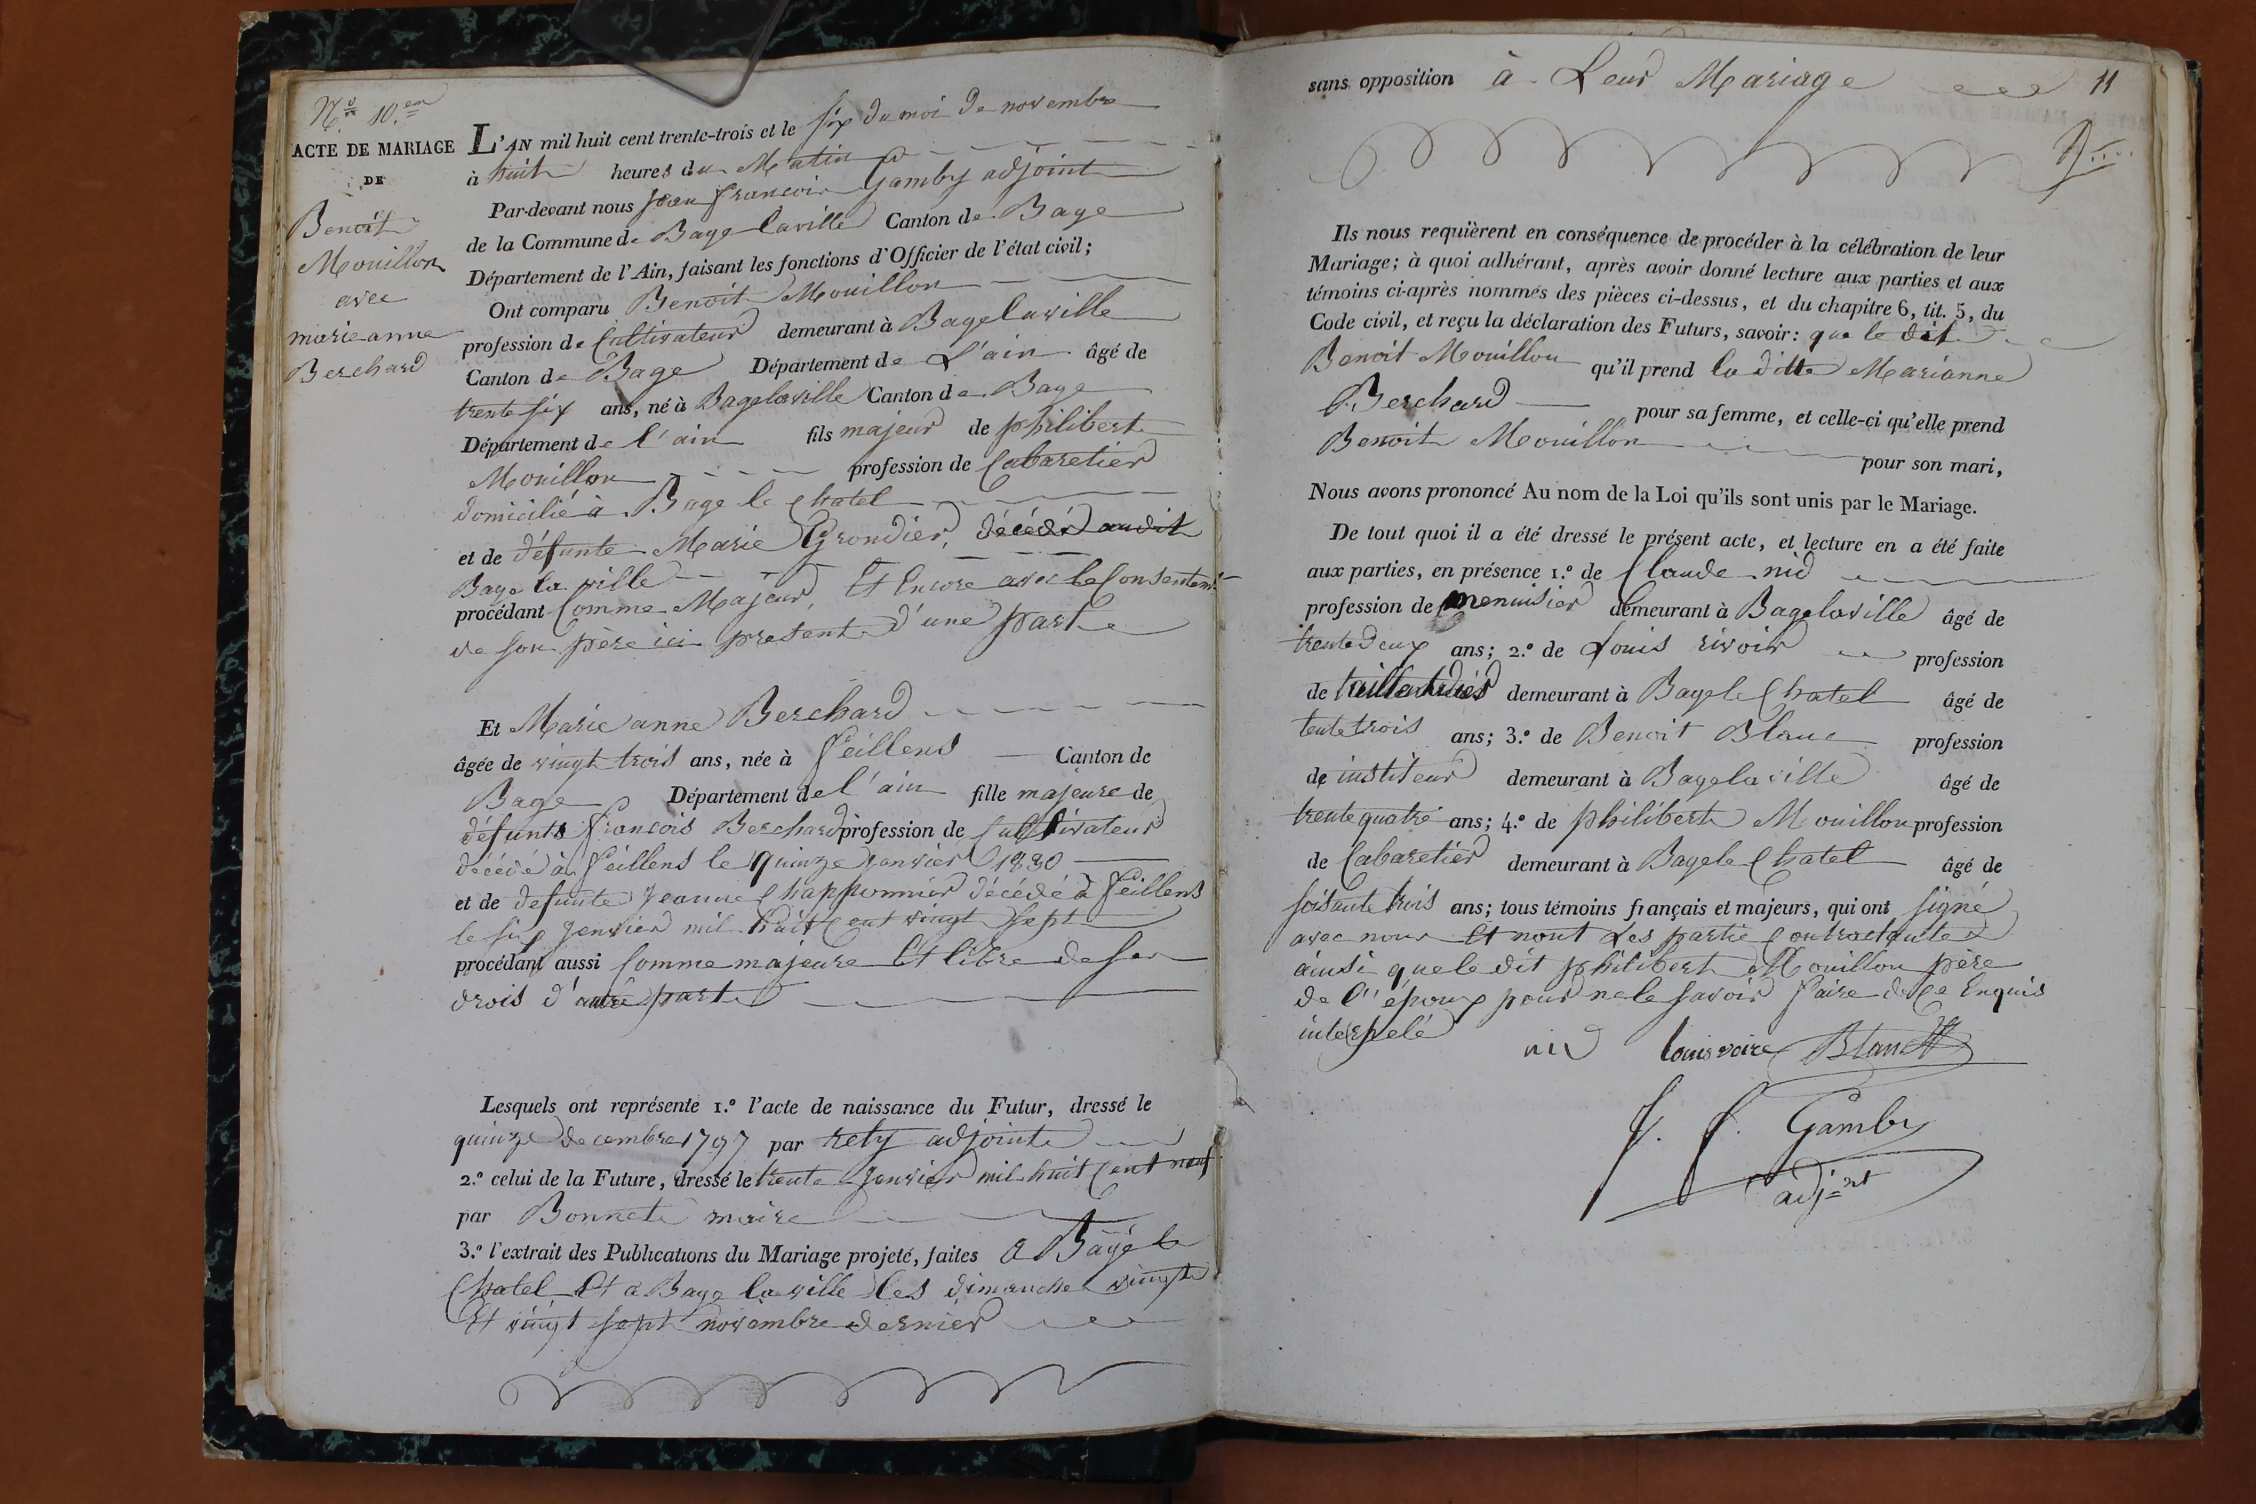 N.o 10.em
ACTE DE MARIAGE
DE
Benoit
Mouillon
avec
marie anne
Berchard
L'AN mil huit cent trente-trois et le six du moi de novembre
à huit heures du Matin
Par-devant nous Jean françois Gamby adjoint
de la Commune de Bage laville Canton de Bage
Département de l'Ain, faisant les fonctions d'Officier de l'état civil;
Ont comparu Benoit Mouillon
profession de Cultivateur demeurant à Bagelaville
Canton de Bage Département de L'ain âgé de
trente six ans, né à Bagelaville Canton de Bage
Département de l'ain fils majeur de philibert
Mouillon profession de Cabaretier
domicilié à Bage le Chatel
et de défunte Marie Grondier, décédé audit
Bage la ville
procédant Comme Majeur, Et Encore avec le Consentem.t
de son père ici present d'une part
Et Marie anne Berchard
âgée de vingt trois ans, née à feillens Canton de
Bage Département de l'ain fille majeure de
défunts françois Berchard profession de Cultivateur
décédé à feillens le quinze janvier 1830
et de defunte Jeanne Chapponnier décédé à feillens
le six Janvier mil huit Cent vingt sept
procédant aussi Comme majeure Et libre de ser
drois d'autre part
Lesquels ont représente 1.o l'acte de naissance du Futur, dressé le
quinze decembre 1797 par rety adjoint
2.o celui de la Future, dressé le trente Janvier mil huit Cent neuf
par Bonnet maire
3.o l'extrait des Publications du Mariage projeté, faites a Bagé le
Chatel Et a Bage la ville les dimanche vingt
Et vingt sept novembre dernier
sans opposition à Leur Mariage 11
Ils nous requièrent en conséquence de procéder à la célébration de leur
Mariage; à quoi adhérant, après avoir donné lecture aux parties et aux
témoins ci-après nommés des pièces ci-dessus, et du chapitre 6, tit. 5, du
Code civil, et reçu la déclaration des Futurs, savoir: que le dit
Benoit Mouillon qu'il prend la ditte Marianne
Berchard pour sa femme, et celle-ci qu'elle prend
Benoit Mouillon pour son mari,
Nous avons prononcé Au nom de la Loi qu'ils sont unis par le Mariage.
De tout quoi il a été dressé le présent acte, et lecture en a été faite
aux parties, en présence 1.o de Claude nid
profession de menuisier demeurant à Bagelaville âgé de
trente deux ans; 2.o de Louis rivoir profession
de taillandier demeurant à Bage le Chatel âgé de
tente trois ans; 3.o de Benoit Blanc profession
de institeur demeurant à Bagelaville âgé de
trente quatre ans; 4.o de philibert Mouillon profession
de Cabaretier demeurant à Bage le Chatel âgé de
soisante trois ans; tous témoins français et majeurs, qui ont signé
avec nous Et nont Les partie Contractante
ainsi que le dit philibert Mouillon père
de l'époux pour ne le savoir faire de Ce Enquis
interpelé
nid Louis voire Blanc
J. f. Gamby
adj.nt